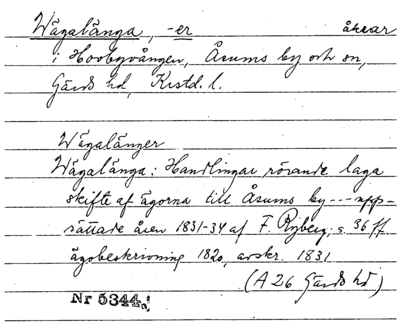 Wägalänga, -er åkrar
i Hoobyvången, Åsums by och sn,
Gärds hd, Krstd. l.
Wägalänger
Wägalänga: Handlingar rörande laga
skifte af ägorna till Åsums by --- upp-
rättade åren 1831-34 af F. Ryberg; s. 36 ff
ägobeskrivning 1820, avskr. 1831
(A 26 Gärds hd)
Nr 5344.